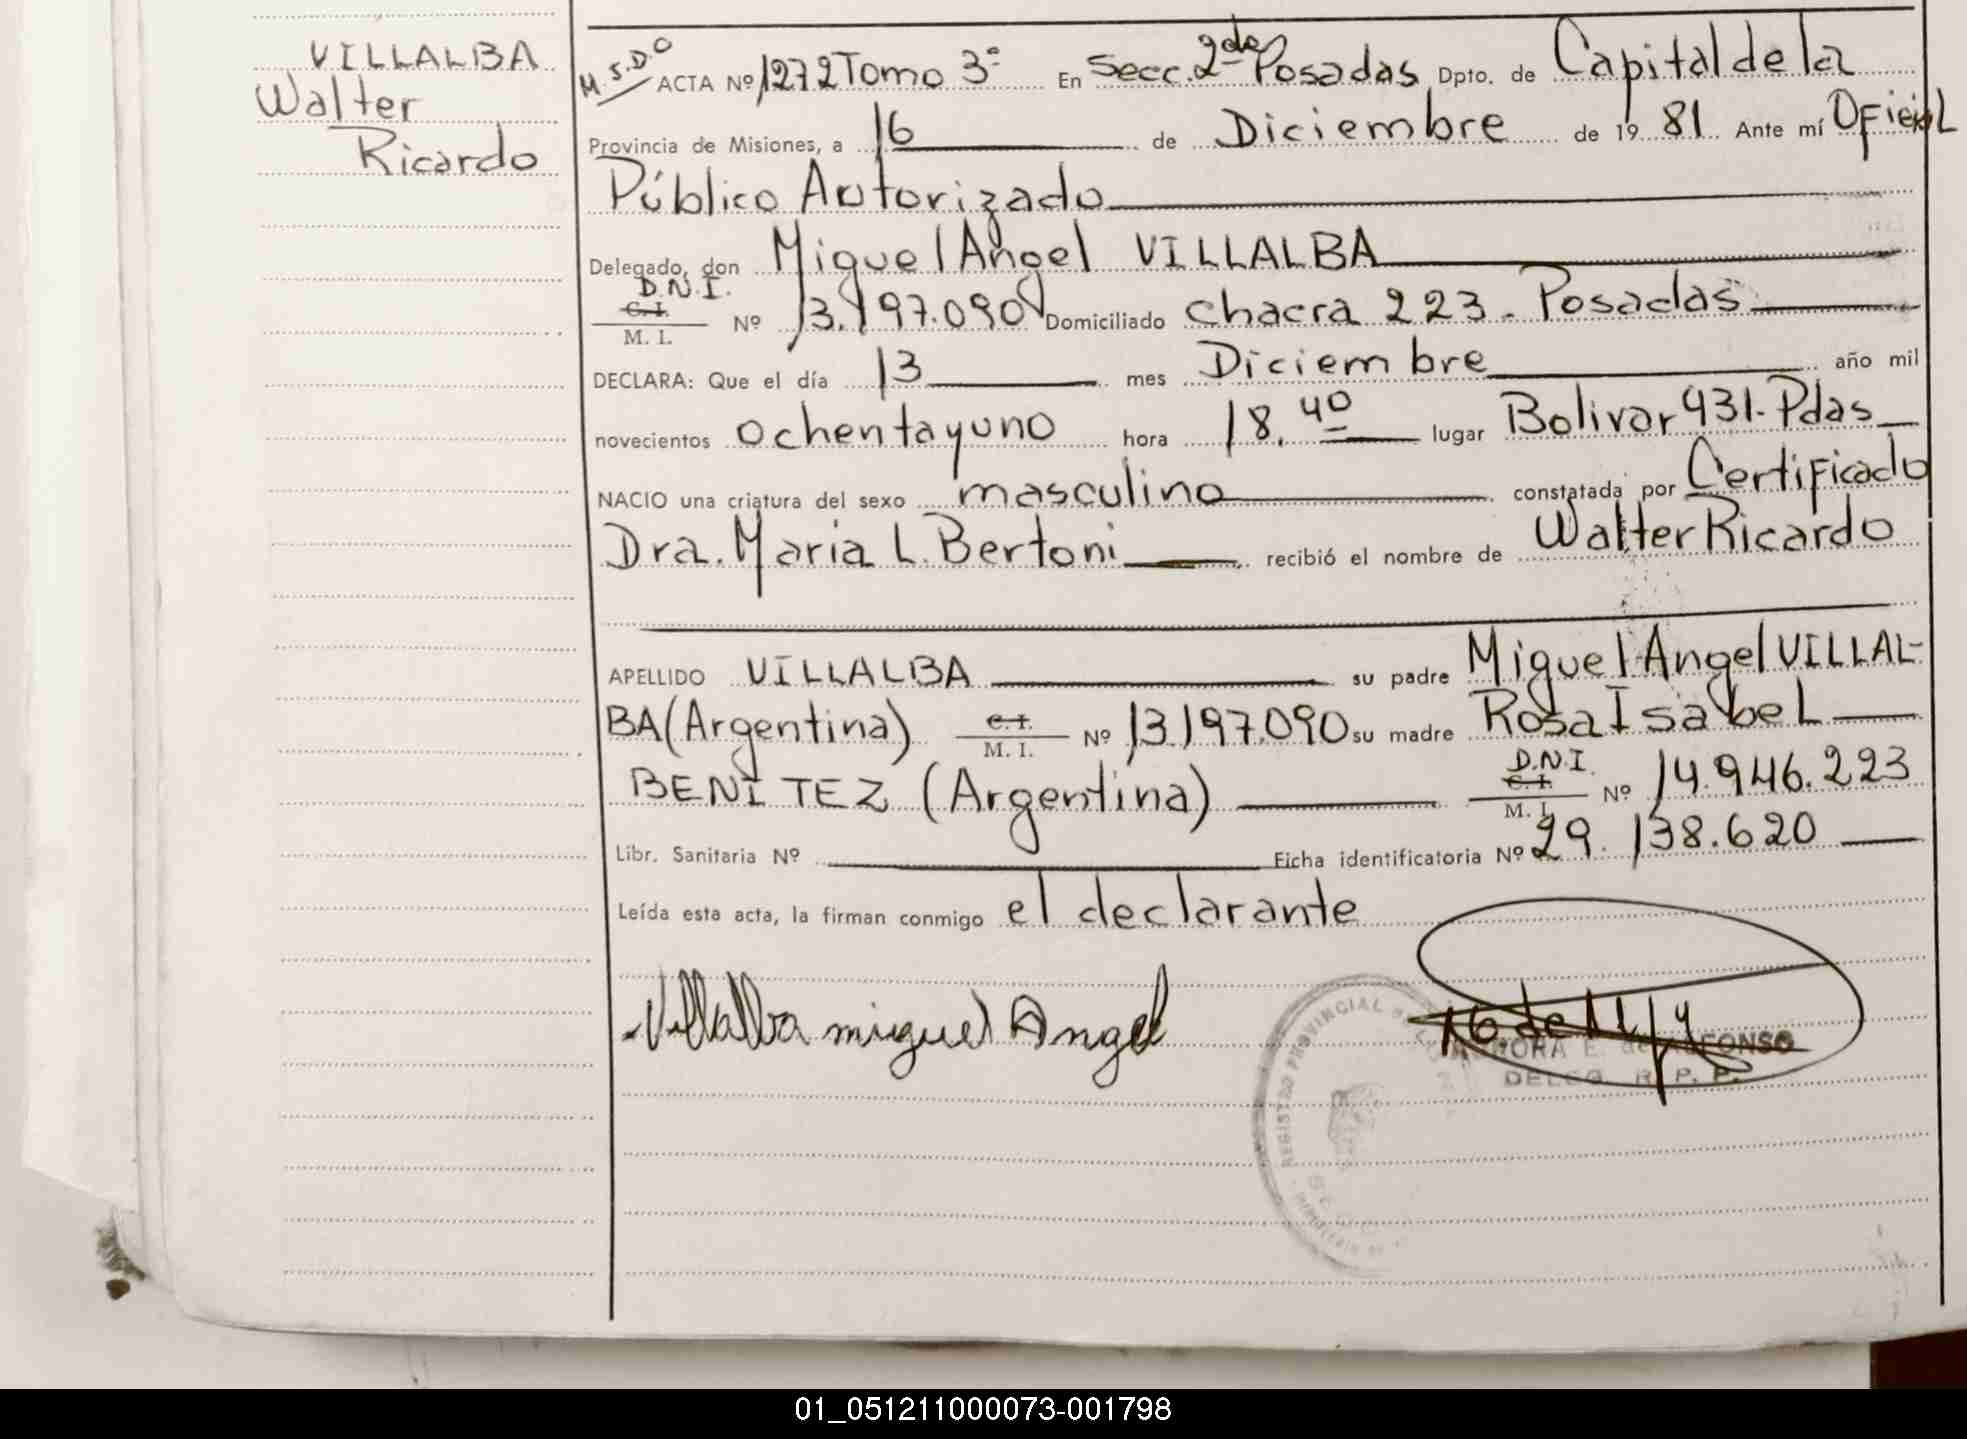 VILLALBA
Walter
Ricardo
M.S.D.O ACTA Nº 1272 Tomo 3º En Secc. 2da Posadas Dpto. de Capital de la
Provincia de Misiones, a 16 de Diciembre de 19 81 Ante mí Oficial
Público Autorizado
Delegado, don Miguel Angel VILLALBA
D.N.I.
C.I.
M. I. Nº 13.197.090 Domiciliado Chacra 223. Posadas
DECLARA: Que el día 13 mes Diciembre año mil
novecientos ochentayuno hora 18.40 lugar Bolivar 931. Pdas
NACIO una criatura del sexo masculino constatada por Certificado
Dra. Maria L. Bertoni recibió el nombre de Walter Ricardo
APELLIDO VILLALBA su padre Miguel Angel VILLAL-
BA (Argentina) C.I. M. I. Nº 13.197.090 su madre Rosa Isabel
BENITEZ (Argentina) D.N.I. C.I. M. I. Nº 14.946.223
Libr. Sanitaria Nº Ficha identificatoria Nº 29.138.620
Leída esta acta, la firman conmigo el declarante
Villalba miguel Angel
REGISTRO PROVINCIAL
E. de FONSO
DELEG. R. P. P.
01_051211000073-001798